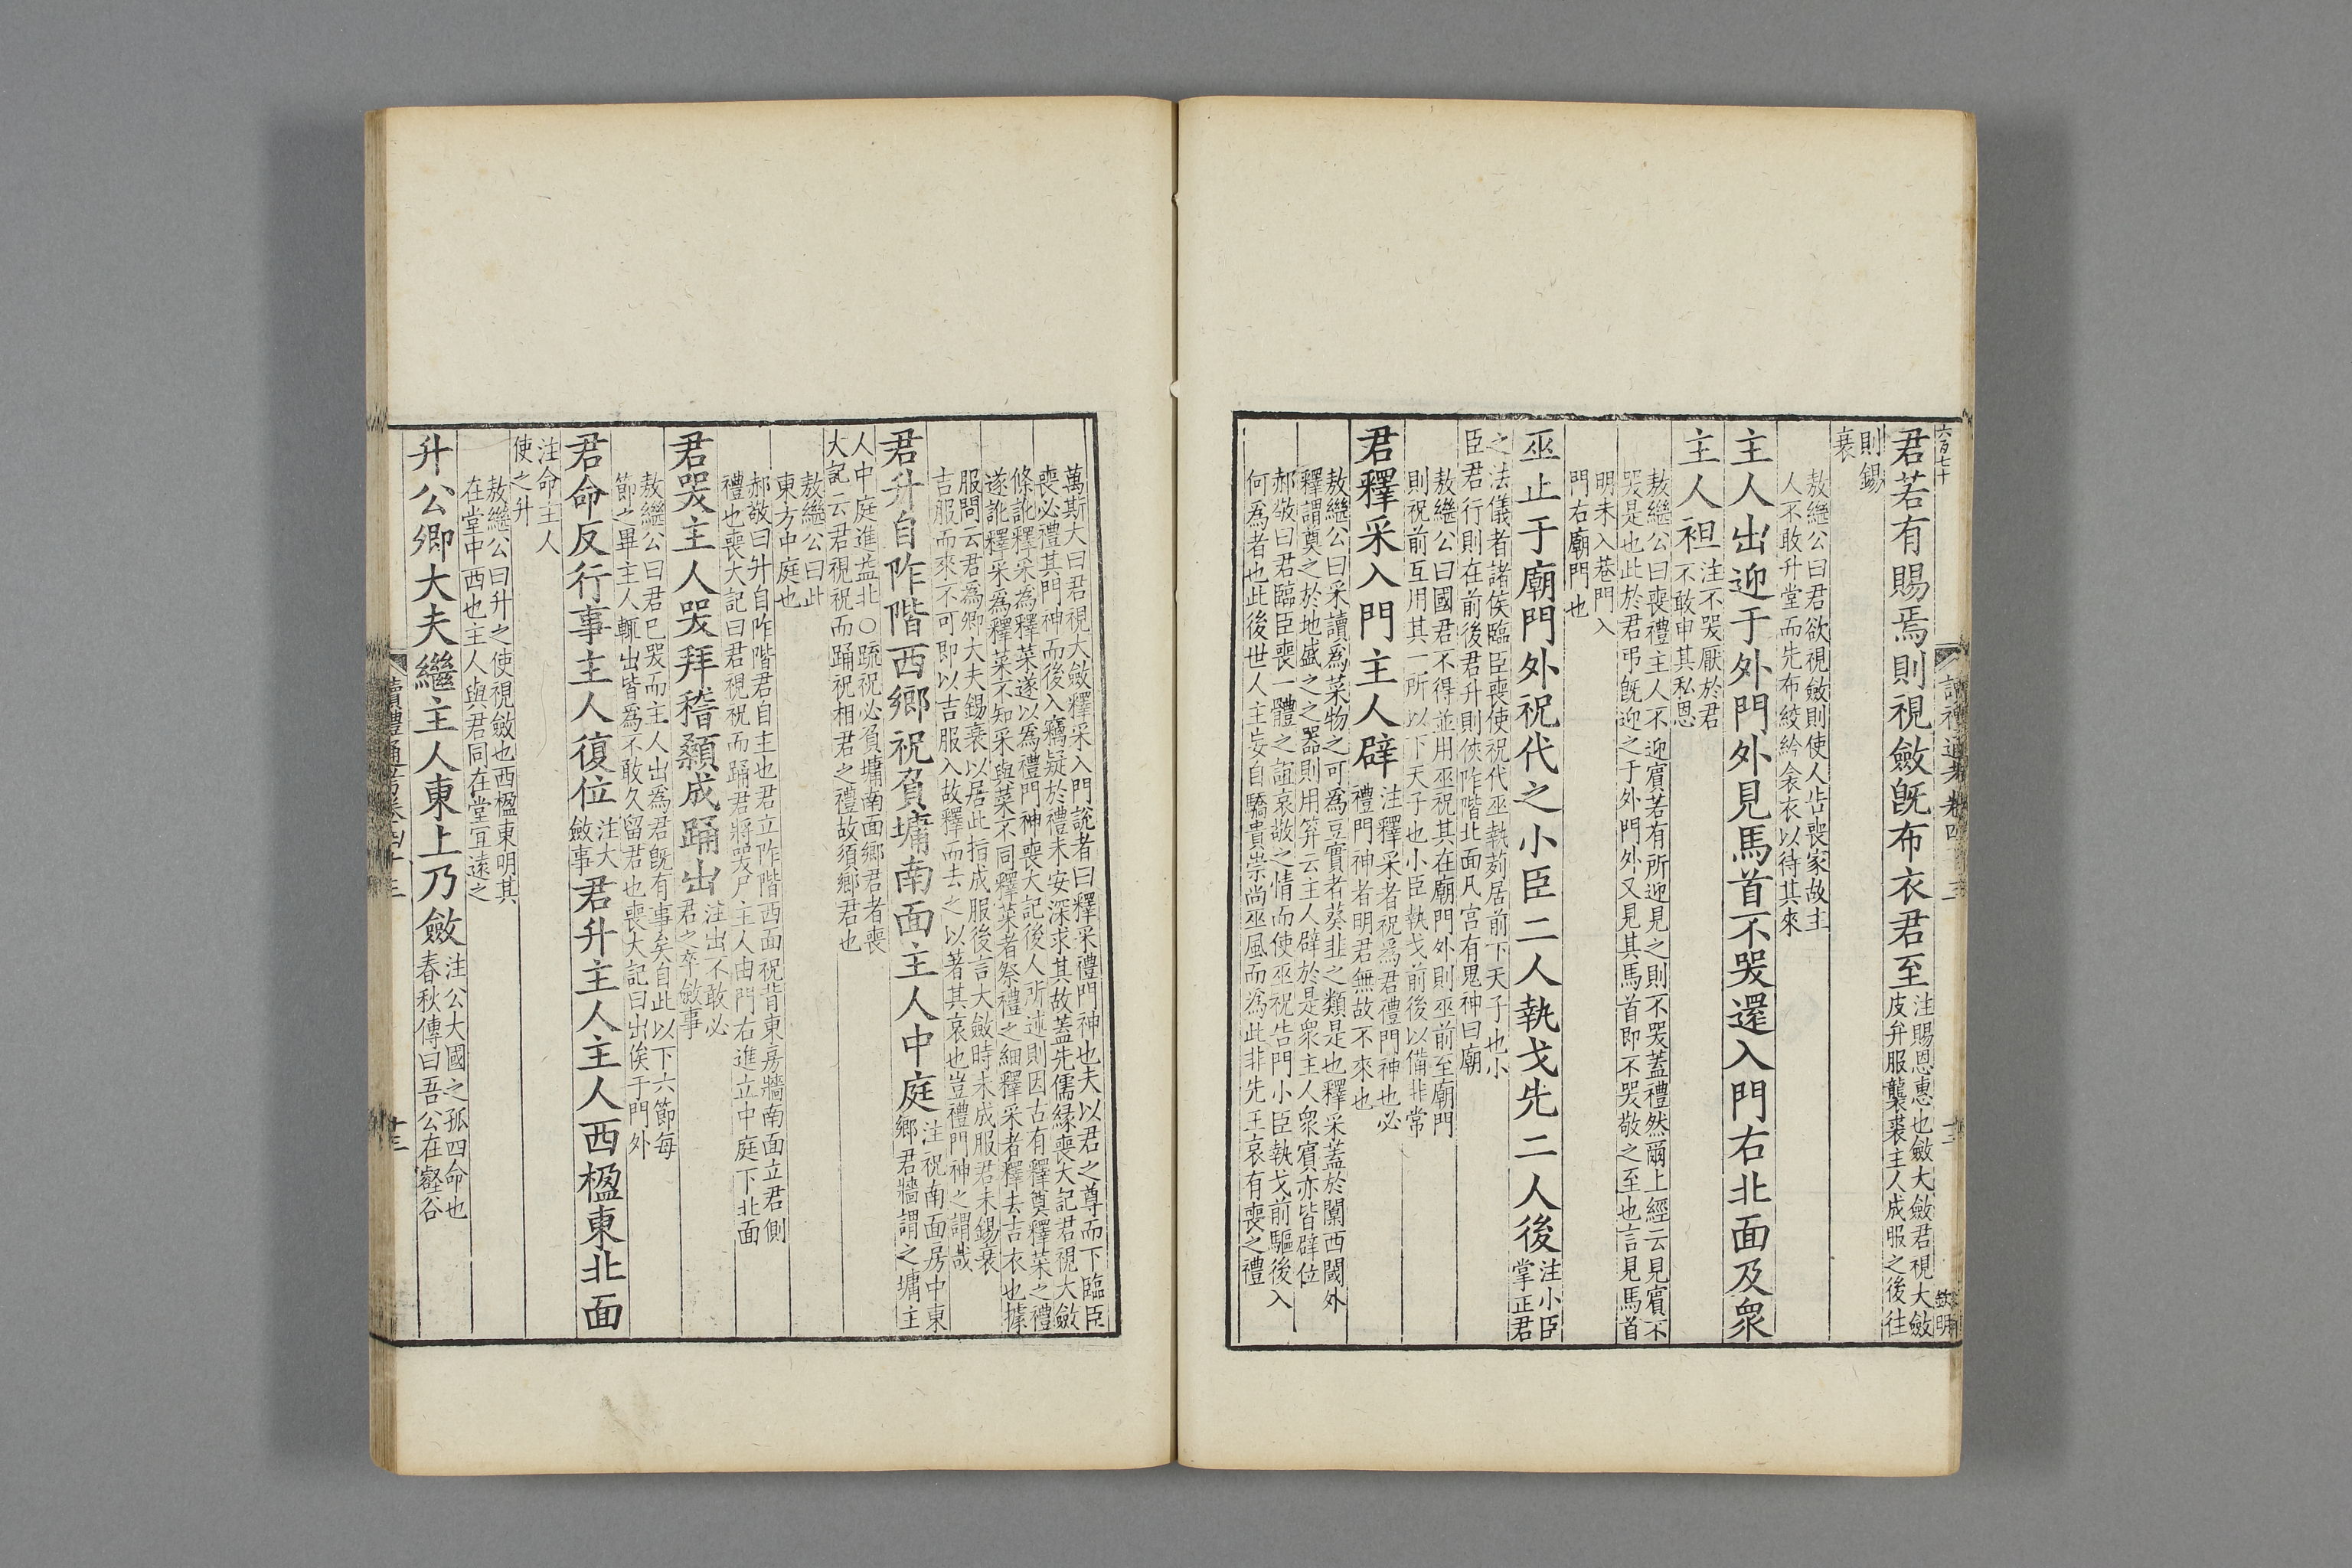 六百七十
君若有賜焉則視斂旣布衣君至注賜恩惠也斂大斂君視大斂
皮弁服襲裘主人成服之後往
則錫
衰
敖繼公曰君欲視斂則使人告喪家故主
人不敢升堂而先布絞紟衾衣以待其來
主人出迎于外門外見馬首不哭還入門右北面及衆
主人袒注不哭厭於君
不敢申其私恩
敖繼公曰喪禮主人不迎賓若有所迎見之則不哭蓋禮然爾上經云見賓不
哭是也此於君弔旣迎之于外門外又見其馬首即不哭敬之至也言見馬首
明未入巷門入
門右廟門也
巫止于廟門外祝代之小臣二人執戈先二人後注小臣
掌正君
之法儀者諸侯臨臣喪使祝代巫執茢居前下天子也小
臣君行則在前後君升則俠阼階北面凡宮有鬼神曰廟
敖繼公曰國君不得並用巫祝其在廟門外則巫前至廟門
則祝前互用其一所以下天子也小臣執戈前後以備非常
君釋采入門主人辟注釋采者祝爲君禮門神也必
禮門神者明君無故不來也
敖繼公曰采讀爲菜物之可爲豆實者葵韭之類是也釋采蓋於闑西閾外
釋謂奠之於地盛之之器則用笲云主人辟於是衆主人衆賓亦皆辟位
郝敬曰君臨臣喪一體之誼哀敬之情而使巫祝告門小臣執戈前驅後入
何爲者也此後世人主妄自驕貴崇尚巫風而爲此非先王哀有喪之禮
萬斯大曰君視大斂釋采入門說者曰釋采禮門神也夫以君之尊而下臨臣
喪必禮其門神而後入竊疑於禮未安深求其故蓋先儒緣喪大記君視大斂
條訛釋采爲釋菜遂以爲禮門神喪大記後人所述則因古有釋奠釋菜之禮
遂訛釋采爲釋菜不知采與菜不同釋菜者祭禮之細釋采者釋去吉衣也據
服問云君爲卿大夫錫衰以居此指成服後言大斂時未成服君未錫衰
吉服而來不可即以吉服入故釋而去之以著其哀也豈禮門神之謂哉
君升自阼階西鄉祝負墉南面主人中庭注祝南面房中東
鄉君牆謂之墉主
人中庭進益北○疏祝必負墉南面鄉君者喪
大記云君視祝而踊祝相君之禮故須鄉君也
敖繼公曰此
東方中庭也
郝敬曰升自阼階君自主也君立阼階西面祝背東房牆南面立君側
禮也喪大記曰君視祝而踊君將哭尸主人由門右進立中庭下北面
君哭主人哭拜稽顙成踊出注出不敢必
君之卒斂事
敖繼公曰君已哭而主人出爲君旣有事矣自此以下六節每
節之畢主人輒出皆爲不敢久留君也喪大記曰出俟于門外
君命反行事主人復位注大
斂事君升主人主人西楹東北面
注命主人
使之升
敖繼公曰升之使視斂也西楹東明其
在堂中西也主人與君同在堂宜遠之
升公卿大夫繼主人東上乃斂注公大國之孤四命也
春秋傳曰吾公在壑谷
讀禮通考卷四十三
十三